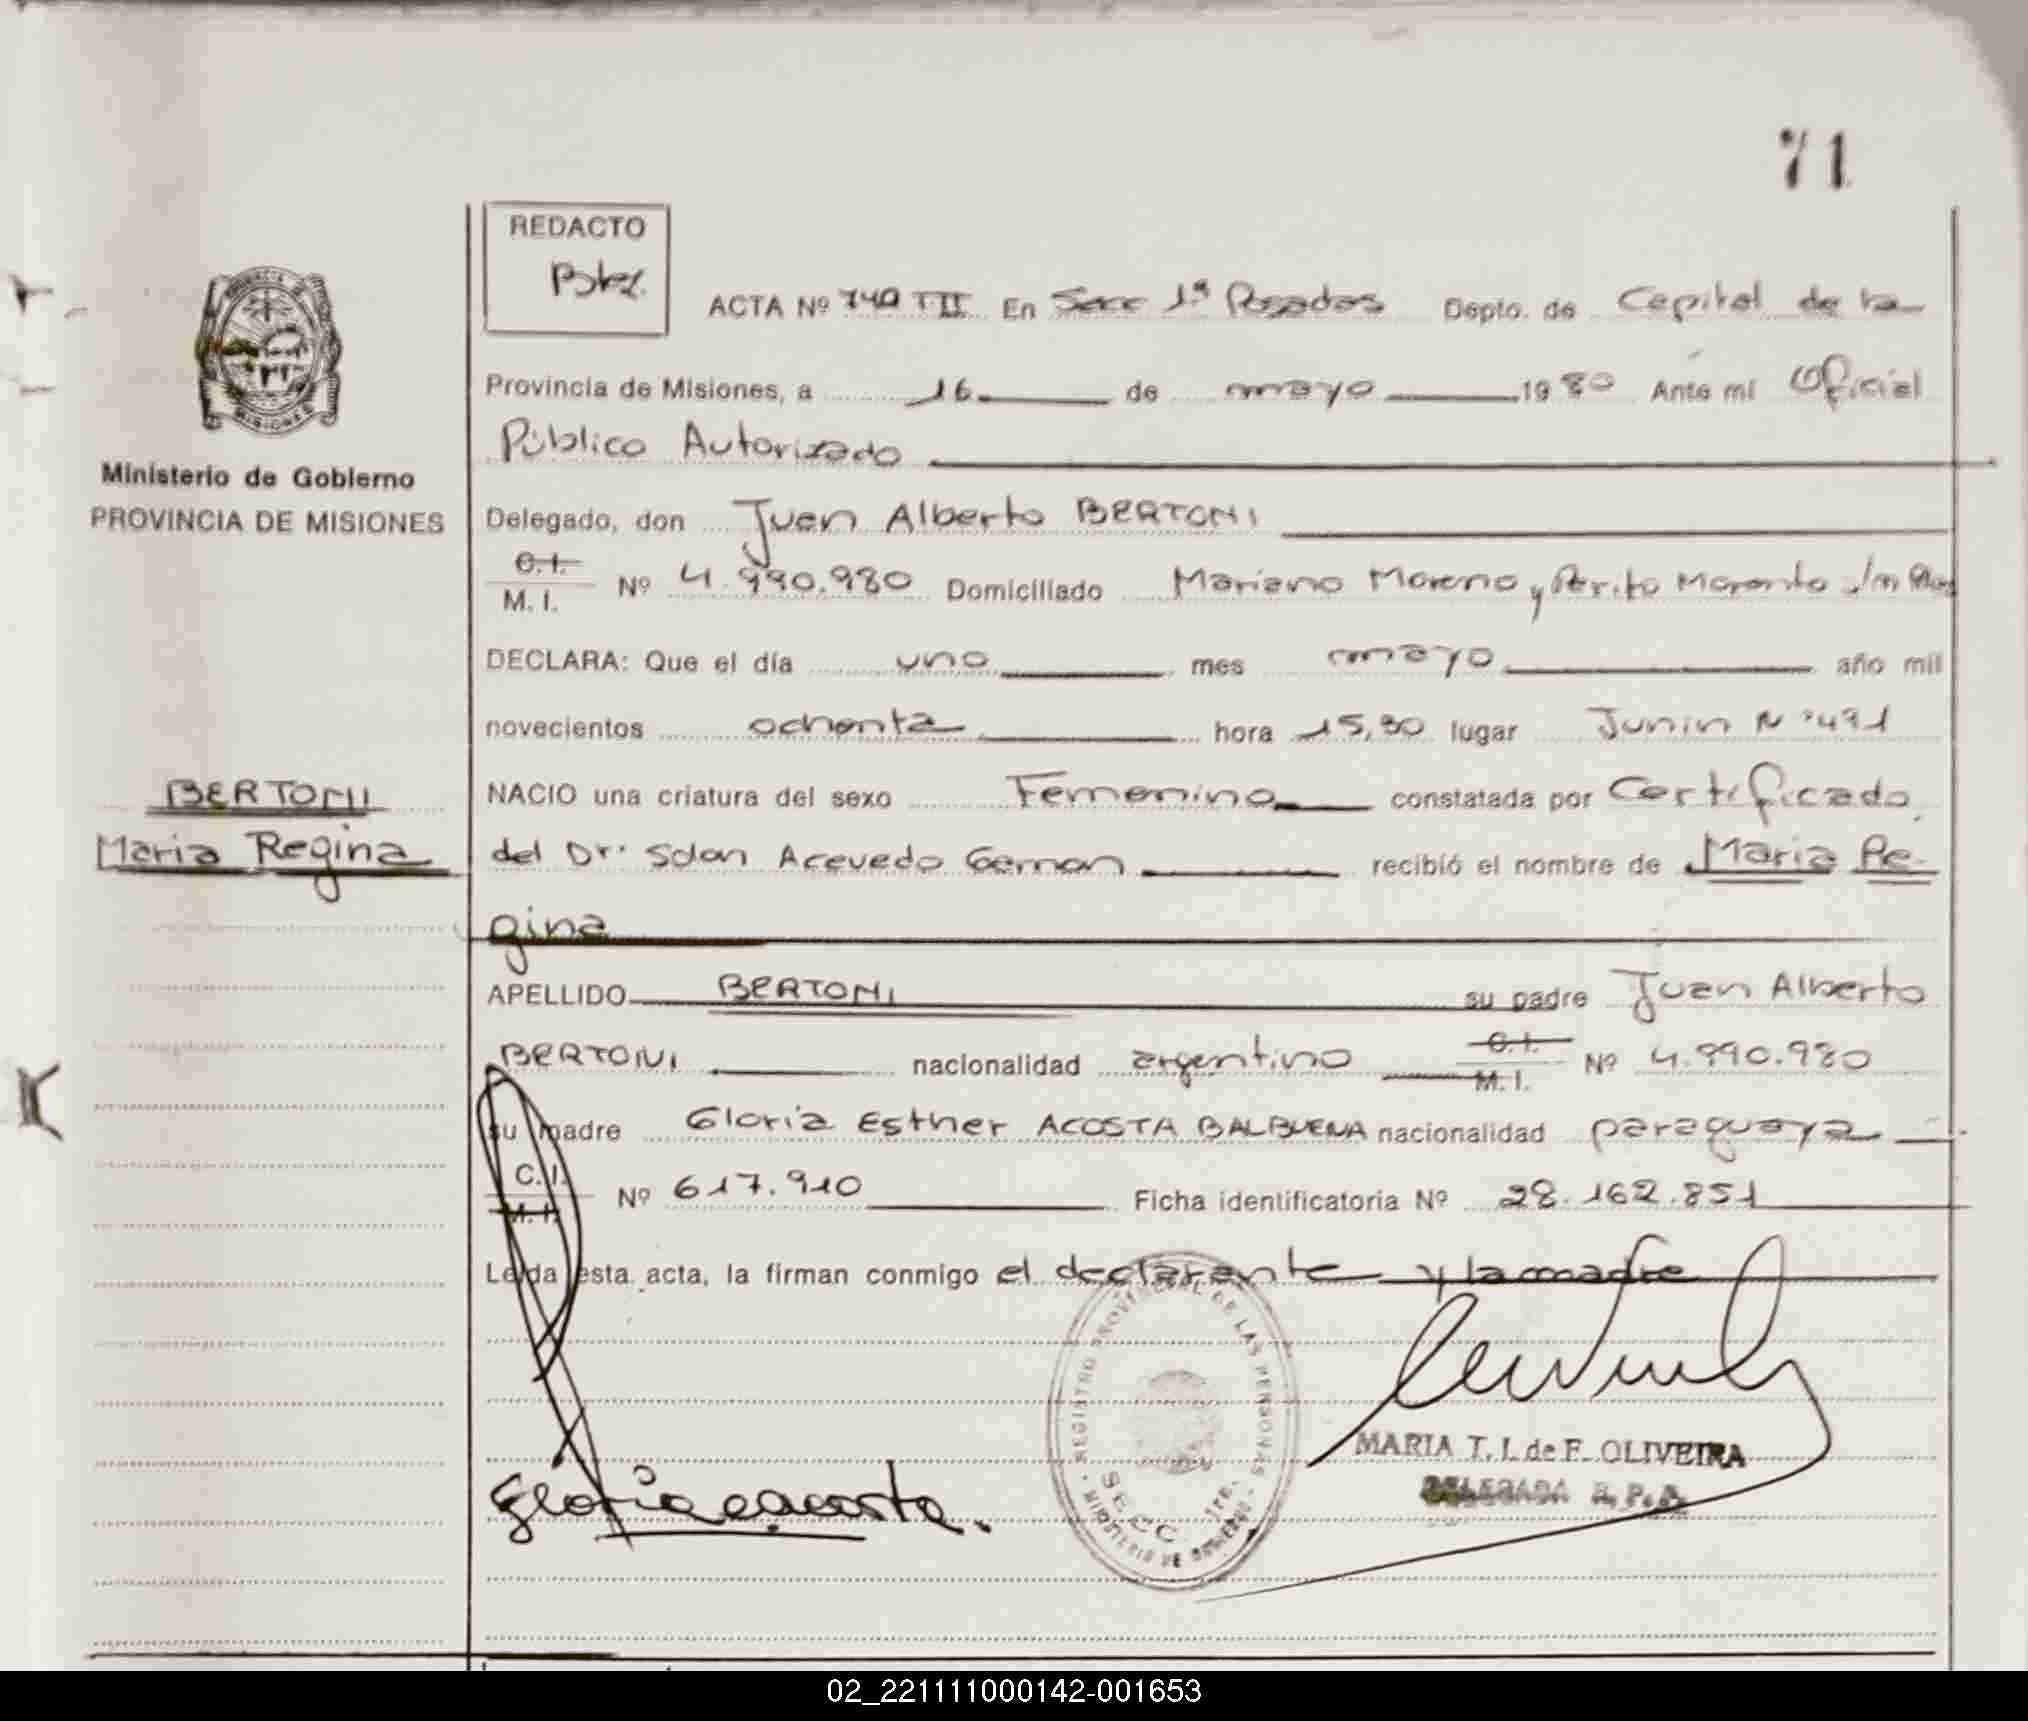 71
REDACTO
ACTA Nº 740 TII En Secc 1ª Posadas Depto. de Capital de la
Provincia de Misiones, a 16 de mayo 1980 Ante mí Oficial
Público Autorizado
Ministerio de Gobierno
PROVINCIA DE MISIONES
Delegado, don Juan Alberto BERTONI
C.I. M.I. Nº 4.990.980 Domiciliado Mariano Moreno y Perito Moreno
DECLARA: Que el día uno mes mayo año mil
novecientos ochenta hora 15,30 lugar Junin Nº 491
BERTONI
Maria Regina
NACIO una criatura del sexo Femenino constatada por Certificado
del Dr. Acevedo German recibió el nombre de Maria Re-
gina
APELLIDO BERTONI su padre Juan Alberto
BERTONI nacionalidad argentino C.I. M.I. Nº 4.990.980
su madre Gloria Esther ACOSTA BALBUENA nacionalidad paraguaya
C.I. M.I. Nº 617.910 Ficha identificatoria Nº 28.162.851
Leída esta acta, la firman conmigo el declarante y la madre
REGISTRO PROVINCIAL DE LAS PERSONAS
SECC. 1ra.
MINISTERIO DE GOBIERNO
MARIA T. I. de F. OLIVEIRA
DELEGADA R. P. P.
Gloria e acosta.
02_221111000142-001653